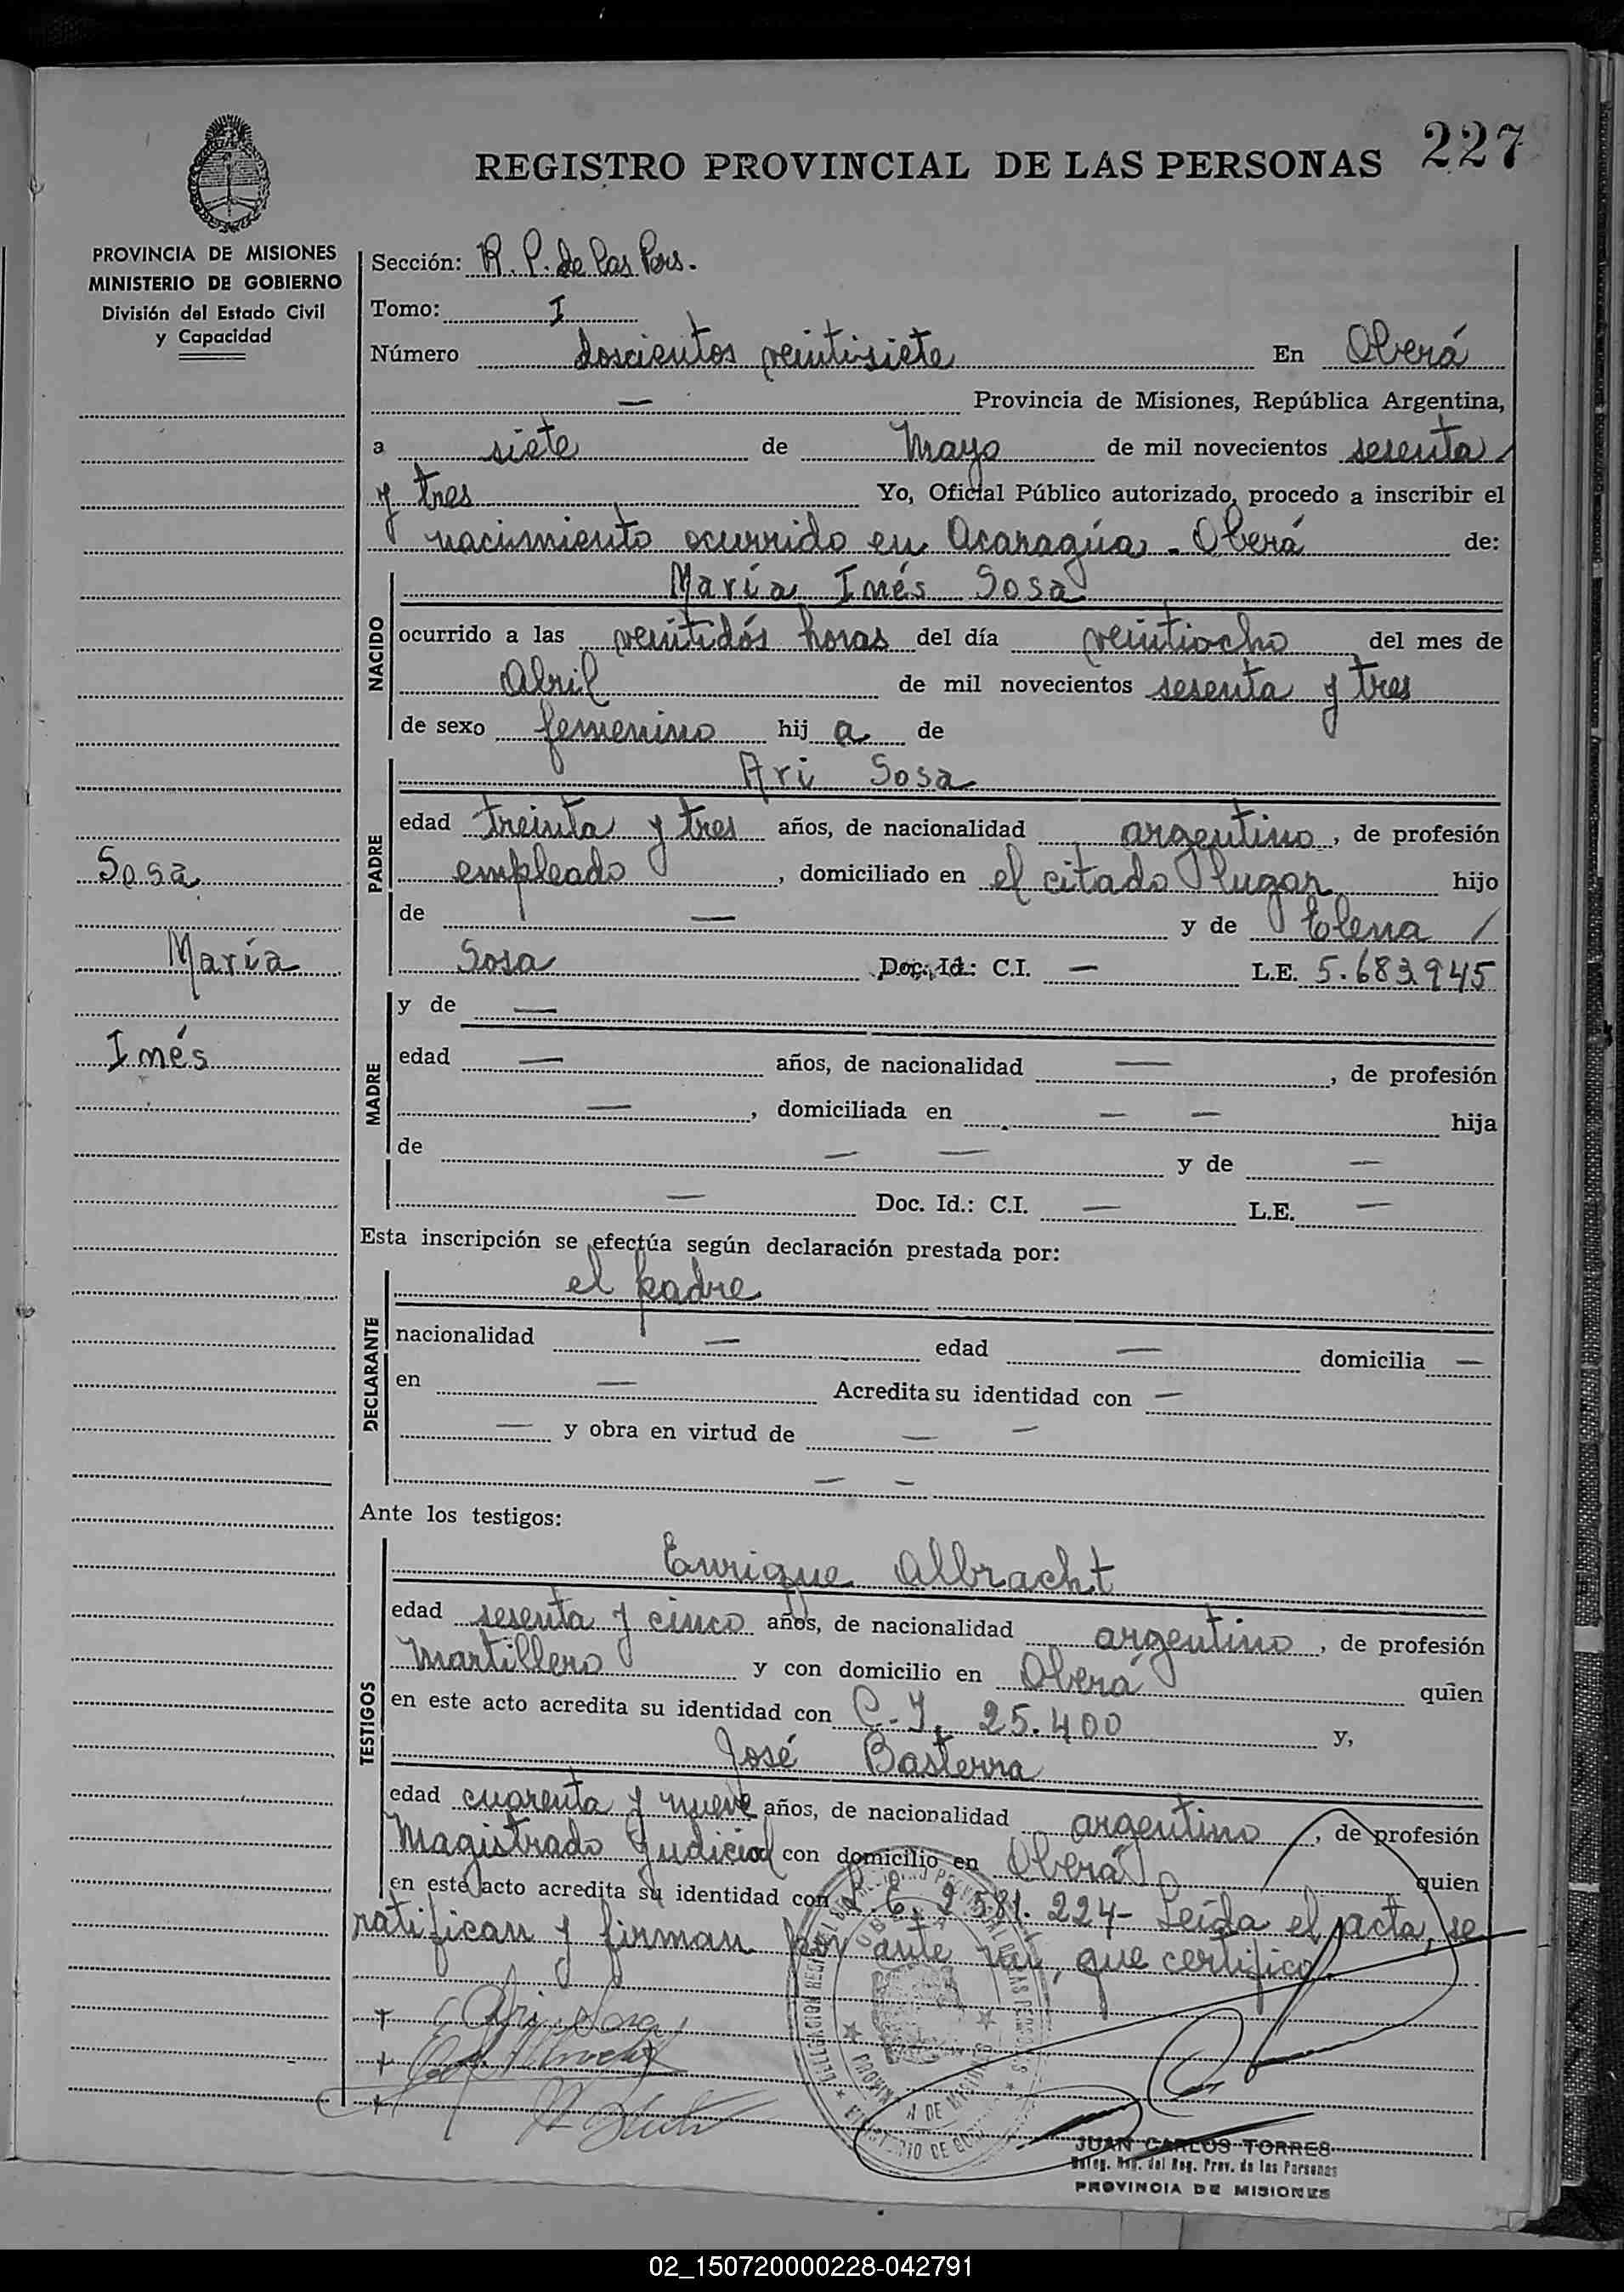 227
REGISTRO PROVINCIAL DE LAS PERSONAS
PROVINCIA DE MISIONES
MINISTERIO DE GOBIERNO
División del Estado Civil
y Capacidad
Sosa
María
Inés
Sección: R. P. de las Pers.
Tomo: I
Número doscientos veintisiete En Oberá
— Provincia de Misiones, República Argentina,
a siete de Mayo de mil novecientos sesenta
y tres Yo, Oficial Público autorizado, procedo a inscribir el
nacimiento ocurrido en Acaragúa - Oberá de:
NACIDO
María Inés Sosa
ocurrido a las veintidós horas del día veintiocho del mes de
Abril de mil novecientos sesenta y tres
de sexo femenino hij a de
PADRE
Ari Sosa
edad treinta y tres años, de nacionalidad argentino, de profesión
empleado, domiciliado en el citado lugar hijo
de — y de Elena /
Sosa Doc. Id.: C.I. — L.E. 5.683.945
MADRE
y de —
edad — años, de nacionalidad —, de profesión
—, domiciliada en — — hija
de — — y de —
— Doc. Id.: C.I. — L.E. —
Esta inscripción se efectúa según declaración prestada por:
DECLARANTE
el padre
nacionalidad — edad — domicilia —
en — Acredita su identidad con —
— y obra en virtud de — —
— —
Ante los testigos:
TESTIGOS
Enrique Albracht
edad sesenta y cinco años, de nacionalidad argentino, de profesión
Martillero y con domicilio en Oberá quien
en este acto acredita su identidad con C.I. 25.400 y,
José Basterra
edad cuarenta y nueve años, de nacionalidad argentino, de profesión
Magistrado Judicial con domicilio en Oberá quien
en este acto acredita su identidad con L.E. 2.581.224- Leída el acta, se
ratifican y firman por ante mí, que certifico.
Ari Sosa
JUAN CARLOS TORRES
Deleg. Reg. del Reg. Prov. de las Personas
PROVINCIA DE MISIONES
02_150720000228-042791